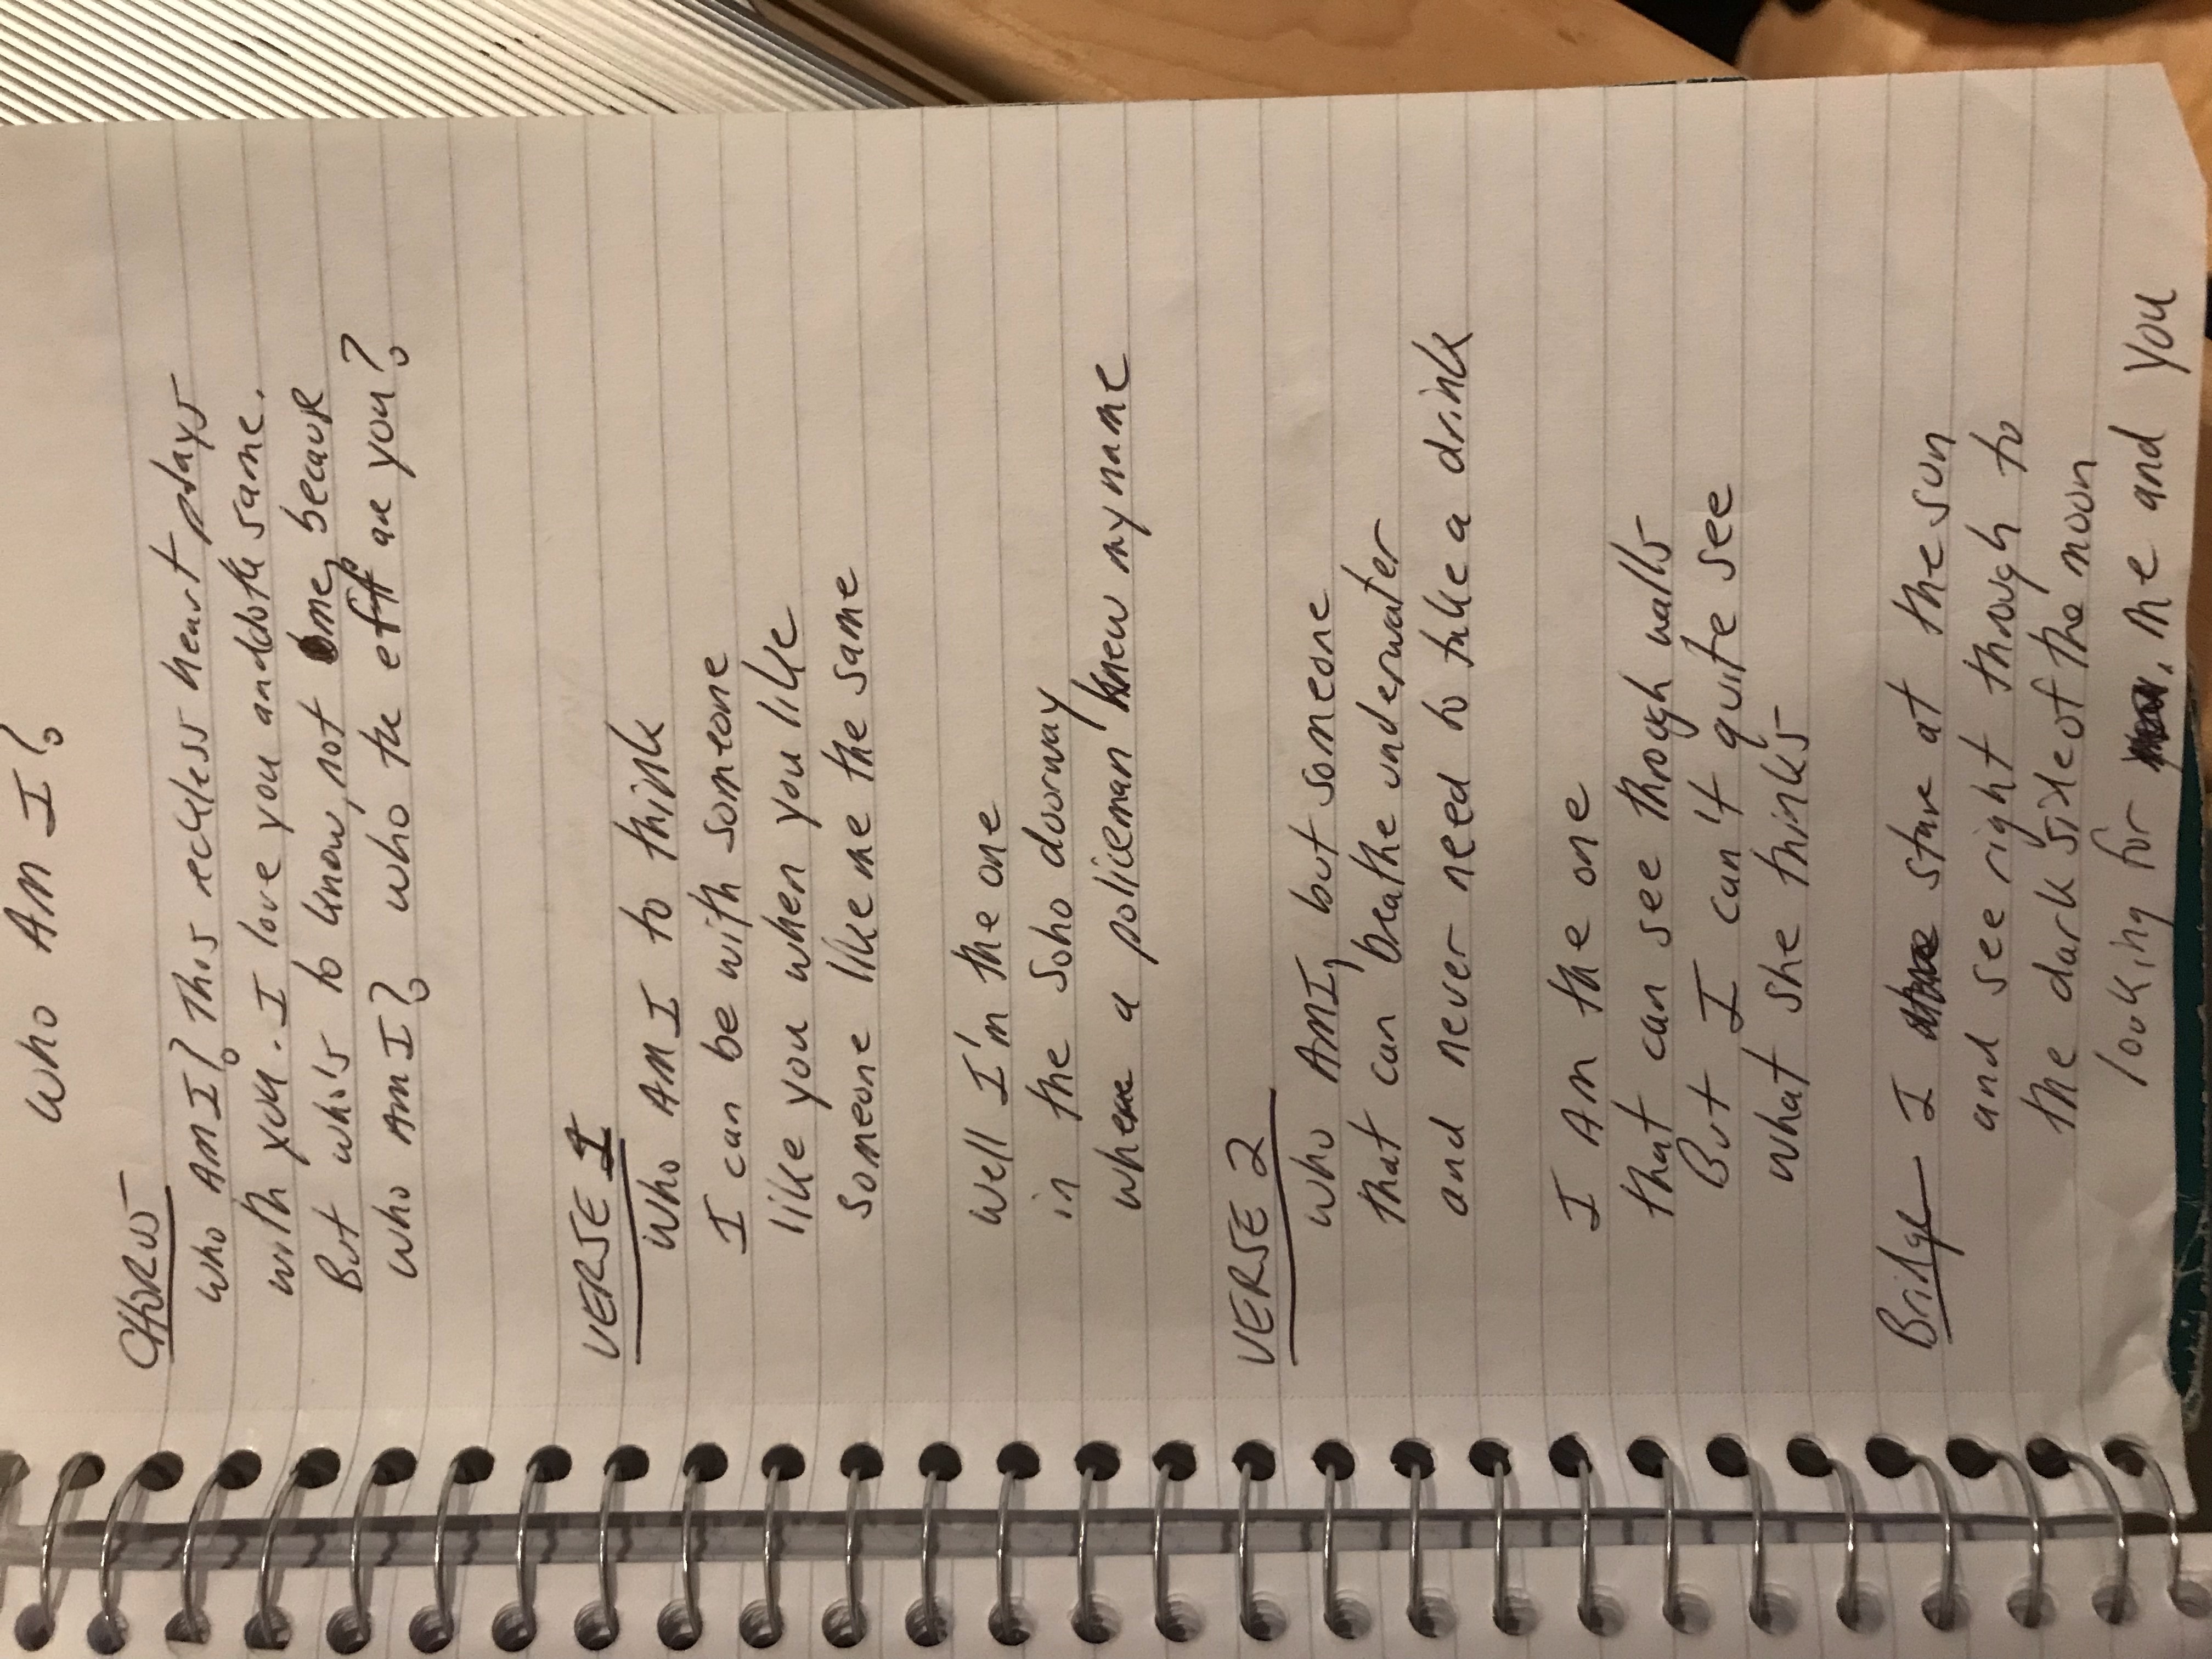 Who Am I?
CHORUS
Who Am I? This reckless heart plays
with you. I love you and do the same.
But who's to know, not me, because
who am I? who the eff are you?
VERSE 1
Who Am I to think
I can be with someone
like you when you like
someone like me the same
Well I'm the one
in the Soho doorway
where a policeman knew my name
VERSE 2
Who Am I, but someone
that can breathe underwater
and never need to take a drink
I Am the one
that can see through walls
But I can't quite see
what she thinks
Bridge - I stare at the sun
and see right through to
the dark side of the moon
looking for me and you